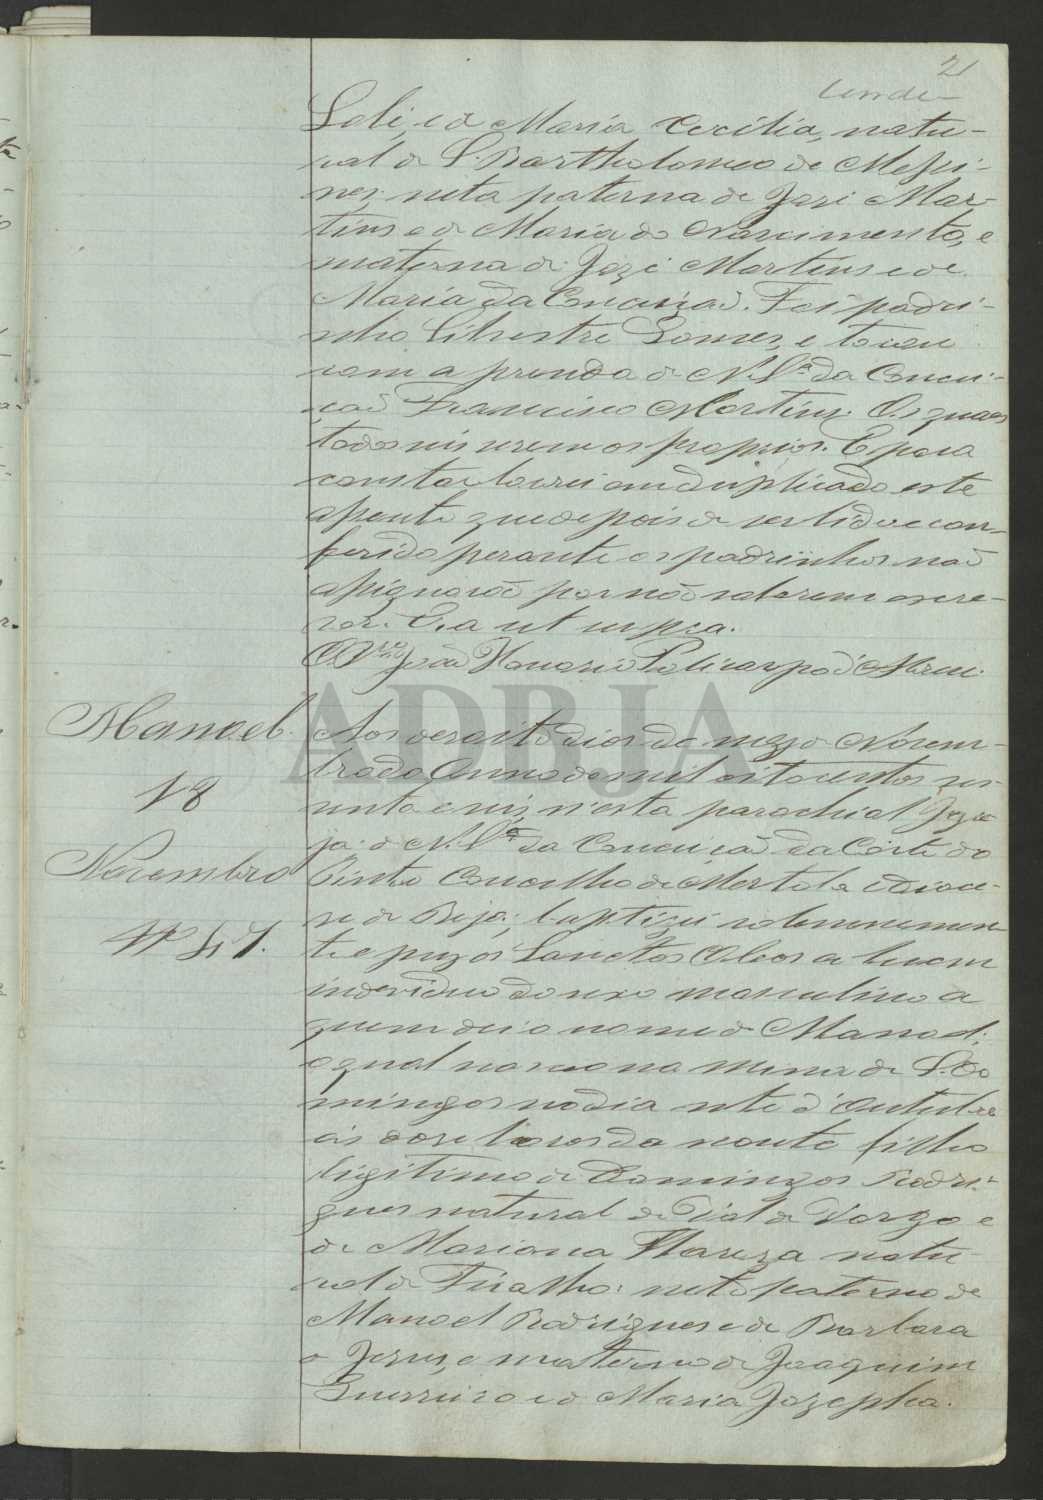 21
Loli, e de Maria Cecilia, natu-
ral de S. Bartholomeo de Messi-
nes; neta paterna de Jozé Mar-
tins e de Maria do Nascimento, e
materna de Jozé Martins e de
Maria da Conceição. Foi padri-
nho Silvestre Gomes, e tocou
com a prenda de N. Sª. da Concei-
ção Francisco Martins. Os quaes
todos sei serem os proprios. E para
constar lavrei em duplicado este
assento que depois de ser lido e con-
ferido perante os padrinhos não
assignarão por não saberem escre-
ver. Era ut supra.
O Pr. João Honorio Policarpo d'Abreu.
Manoel
18
Novembro
Nº 47.
Aos desoito dias do mez de Novem-
bro do Anno de mil oitocentos se-
senta e seis, n'esta parochial Igre-
ja de N. Sª. da Conceição da Corte do
Pinto Concelho de Mertola e dioce-
se de Beja; baptizei solemnemen-
te e puz os Sanctos Oleos a hum
individuo do sexo masculino a
quem dei o nome de Manoel;
o qual nasceo na Mina de S. Do
mingos no dia sete d'Outubro
ás doze horas da noute filho
legitimo de Domingos Rodri-
gues natural de Val de Vargo e
de Mariana natu-
ral de Ficalho: neto paterno de
Manoel Rodrigues e de Barbara
de Jezus, e materno de Joaquim
Guerreiro e de Maria Jozepha.
ADBJA